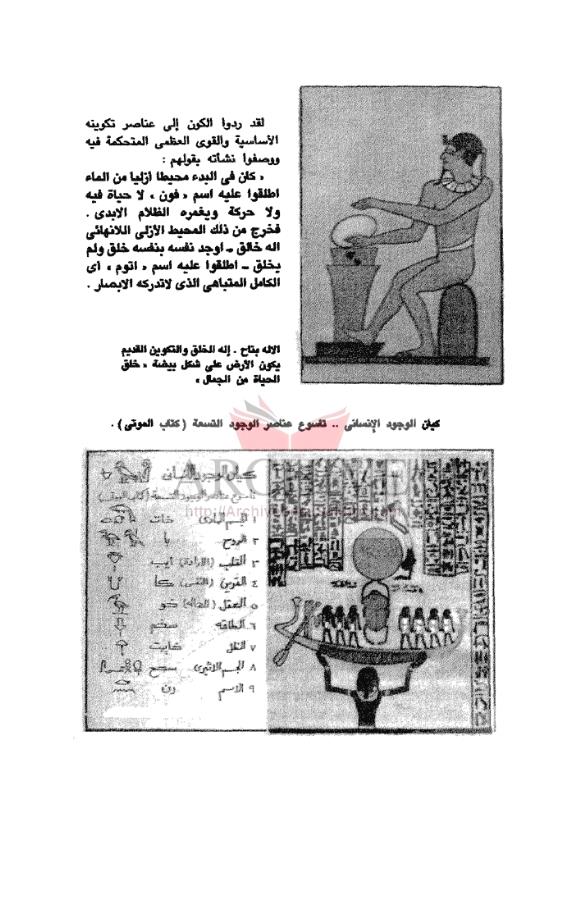 لقد ردوا الكون إلى عناصر تكوينه
الأساسية والقوى العظمى المتحكمة فيه
ووصفوا نشأته بقولهم :
« كان فى البدء محيطا أزليا من الماء
اطلقوا عليه اسم « فون » لا حياة فيه
ولا حركة ويغمره الظلام الابدى .
فخرج من ذلك المحيط الأزلى اللانهائى
اله خالق ـ اوجد نفسه بنفسه خلق ولم
يخلق ـ اطلقوا عليه اسم « اتوم » أى
الكامل المتباهى الذى لاتدركه الابصار .
الاله بتاح . إله الخلق والتكوين القديم
يكون الأرض على شكل بيضة « خلق
الحياة من الجمال »
كيان الوجود الإنسانى .. تاسوع عناصر الوجود التسعة ( كتاب الموتى ) .
ARCHIVE
كيان الوجود الإنسانى
تاسوع عناصر الوجود التسعة (كتاب الموتى)
١ الجسم المادى) خات
٢ الروح با
٣ القلب (الارادة) ايب
٤ القرين (النفس) كا
٥ العقل خو
٦ الطاقة سخم
٧ الظل خايبت
٨ الجسم الأثيرى) سمح
٩ الاسم رن